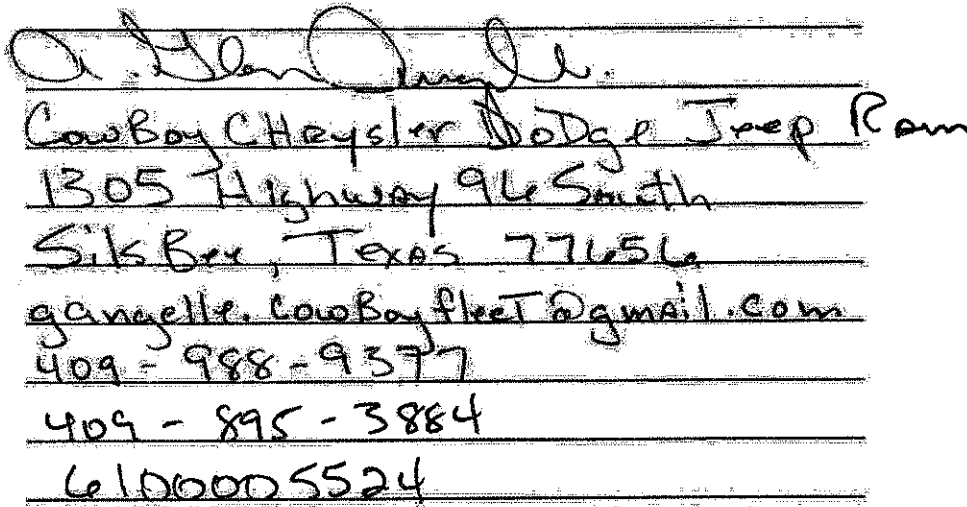 A. Glen Angelle.
CowBoy CHrysler DoDge Jeep Ram
1305 Highway 96 South
SilsBee, Texas 77656
gangelle.cowBoyfleeT@gmail.com
409-988-9377
409-895-3884
6100005524